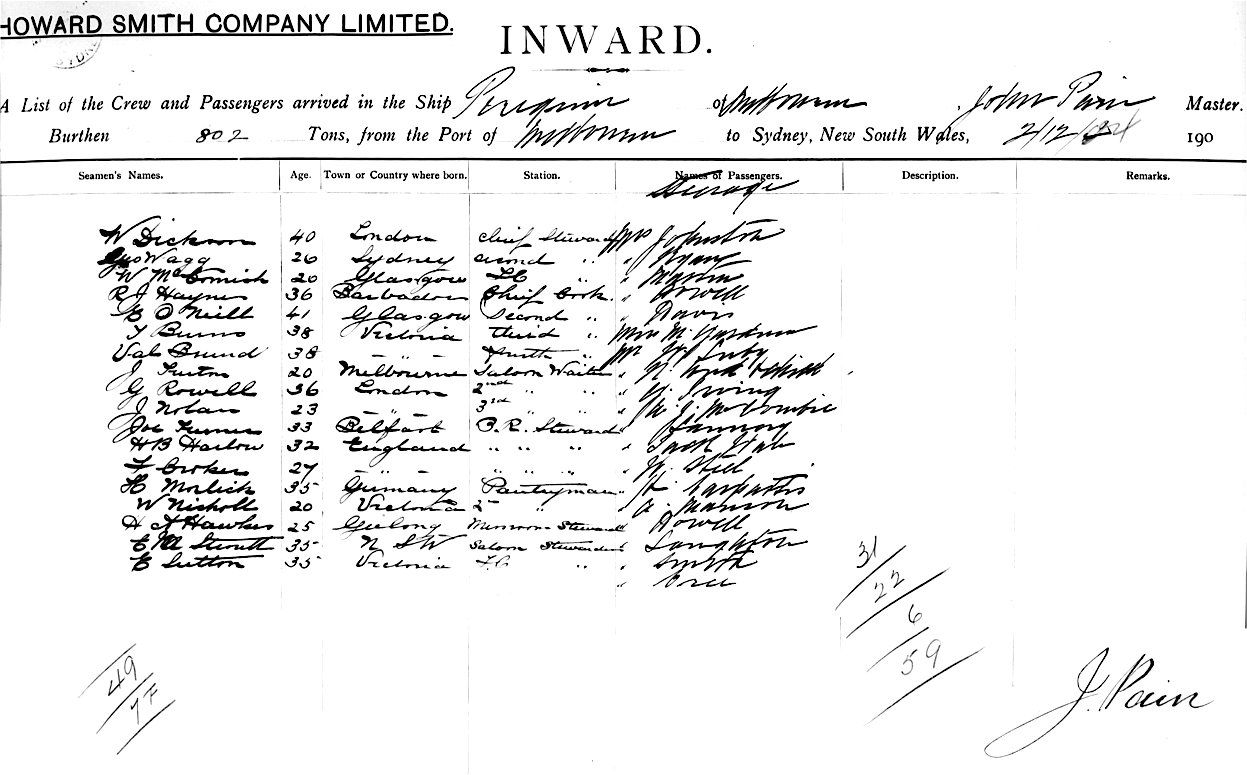 HOWARD SMITH COMPANY LIMITED.
INWARD.
A List of the Crew and Passengers arrived in the Ship Peregrine of Melbourne, John Pain Master.
Burthen 802 Tons, from the Port of Melbourne to Sydney, New South Wales, 2/12/ 190
Seamen's Names. Age. Town or Country where born. Station. Names of Passengers. Description. Remarks.
Steerage
W Dickson 40 London Chief Steward Mr Johnston
Geo Wagg 26 Sydney second " " Ryan
W McCormick 20 Glasgow " "
R J Haynes 36 Barbados Chief Cook " Powell
E O Neill 41 Glasgow Second " " Davis
T Burns 38 Victoria third " Mrs M Gardner
Val Brund 38 - " - " Mr
J 20 Melbourne Saloon Waiter "
G Rowell 36 London 2nd " " " Irving
J Nolan 23 - " - 3rd " " " McCombie
Joe Turner 33 Belfast B.R. Steward " Hannory
H B Harlow 32 England " " " "
F Croker 27 - " - " " " "
H Morlick 35 Germany Pantryman "
W Nicholl 20 Victoria 2nd " " A. Manson
H J Hawkes 25 Geelong Messroom Steward " Powell
E M 35 N S W Saloon Stewardess " Langhton
E Sutton 35 Victoria " " Smith
"
31
22
6
59
49
7 F
J. Pain